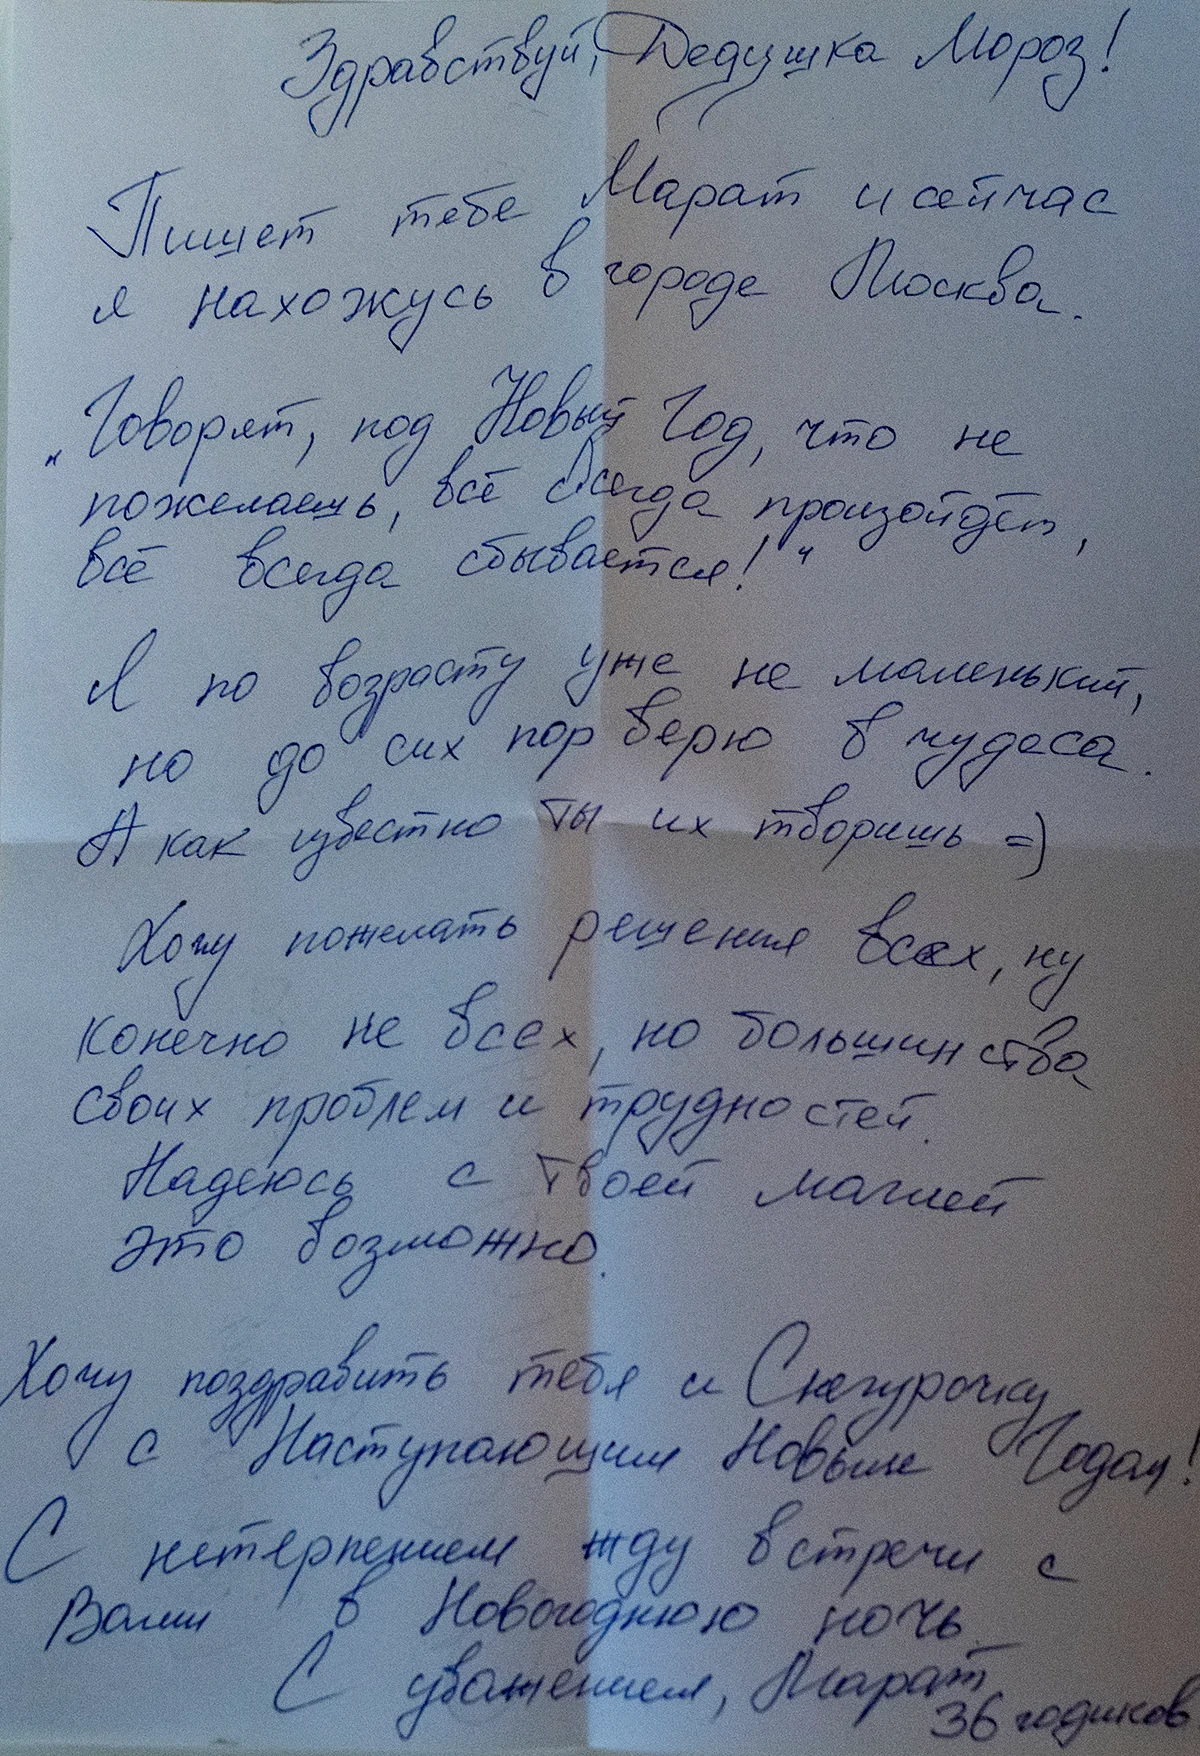 Здравствуй, Дедушка Мороз!
Пишет тебе Марат и сейчас
я нахожусь в городе Москва.
„Говорят, под Новый Год, что не
пожелаешь, всё всегда произойдёт,
всё всегда сбывается!“
Я по возрасту уже не маленький,
но до сих пор верю в чудеса.
А как известно ты их творишь =)
Хочу пожелать решения всех, ну
конечно не всех, но большинства
своих проблем и трудностей.
Надеюсь с твоей магией
это возможно.
Хочу поздравить тебя и Снегурочку
с Наступающим Новым Годом!
С нетерпением жду встречи с
Вами в Новогоднюю ночь.
С уважением, Марат
36 годиков